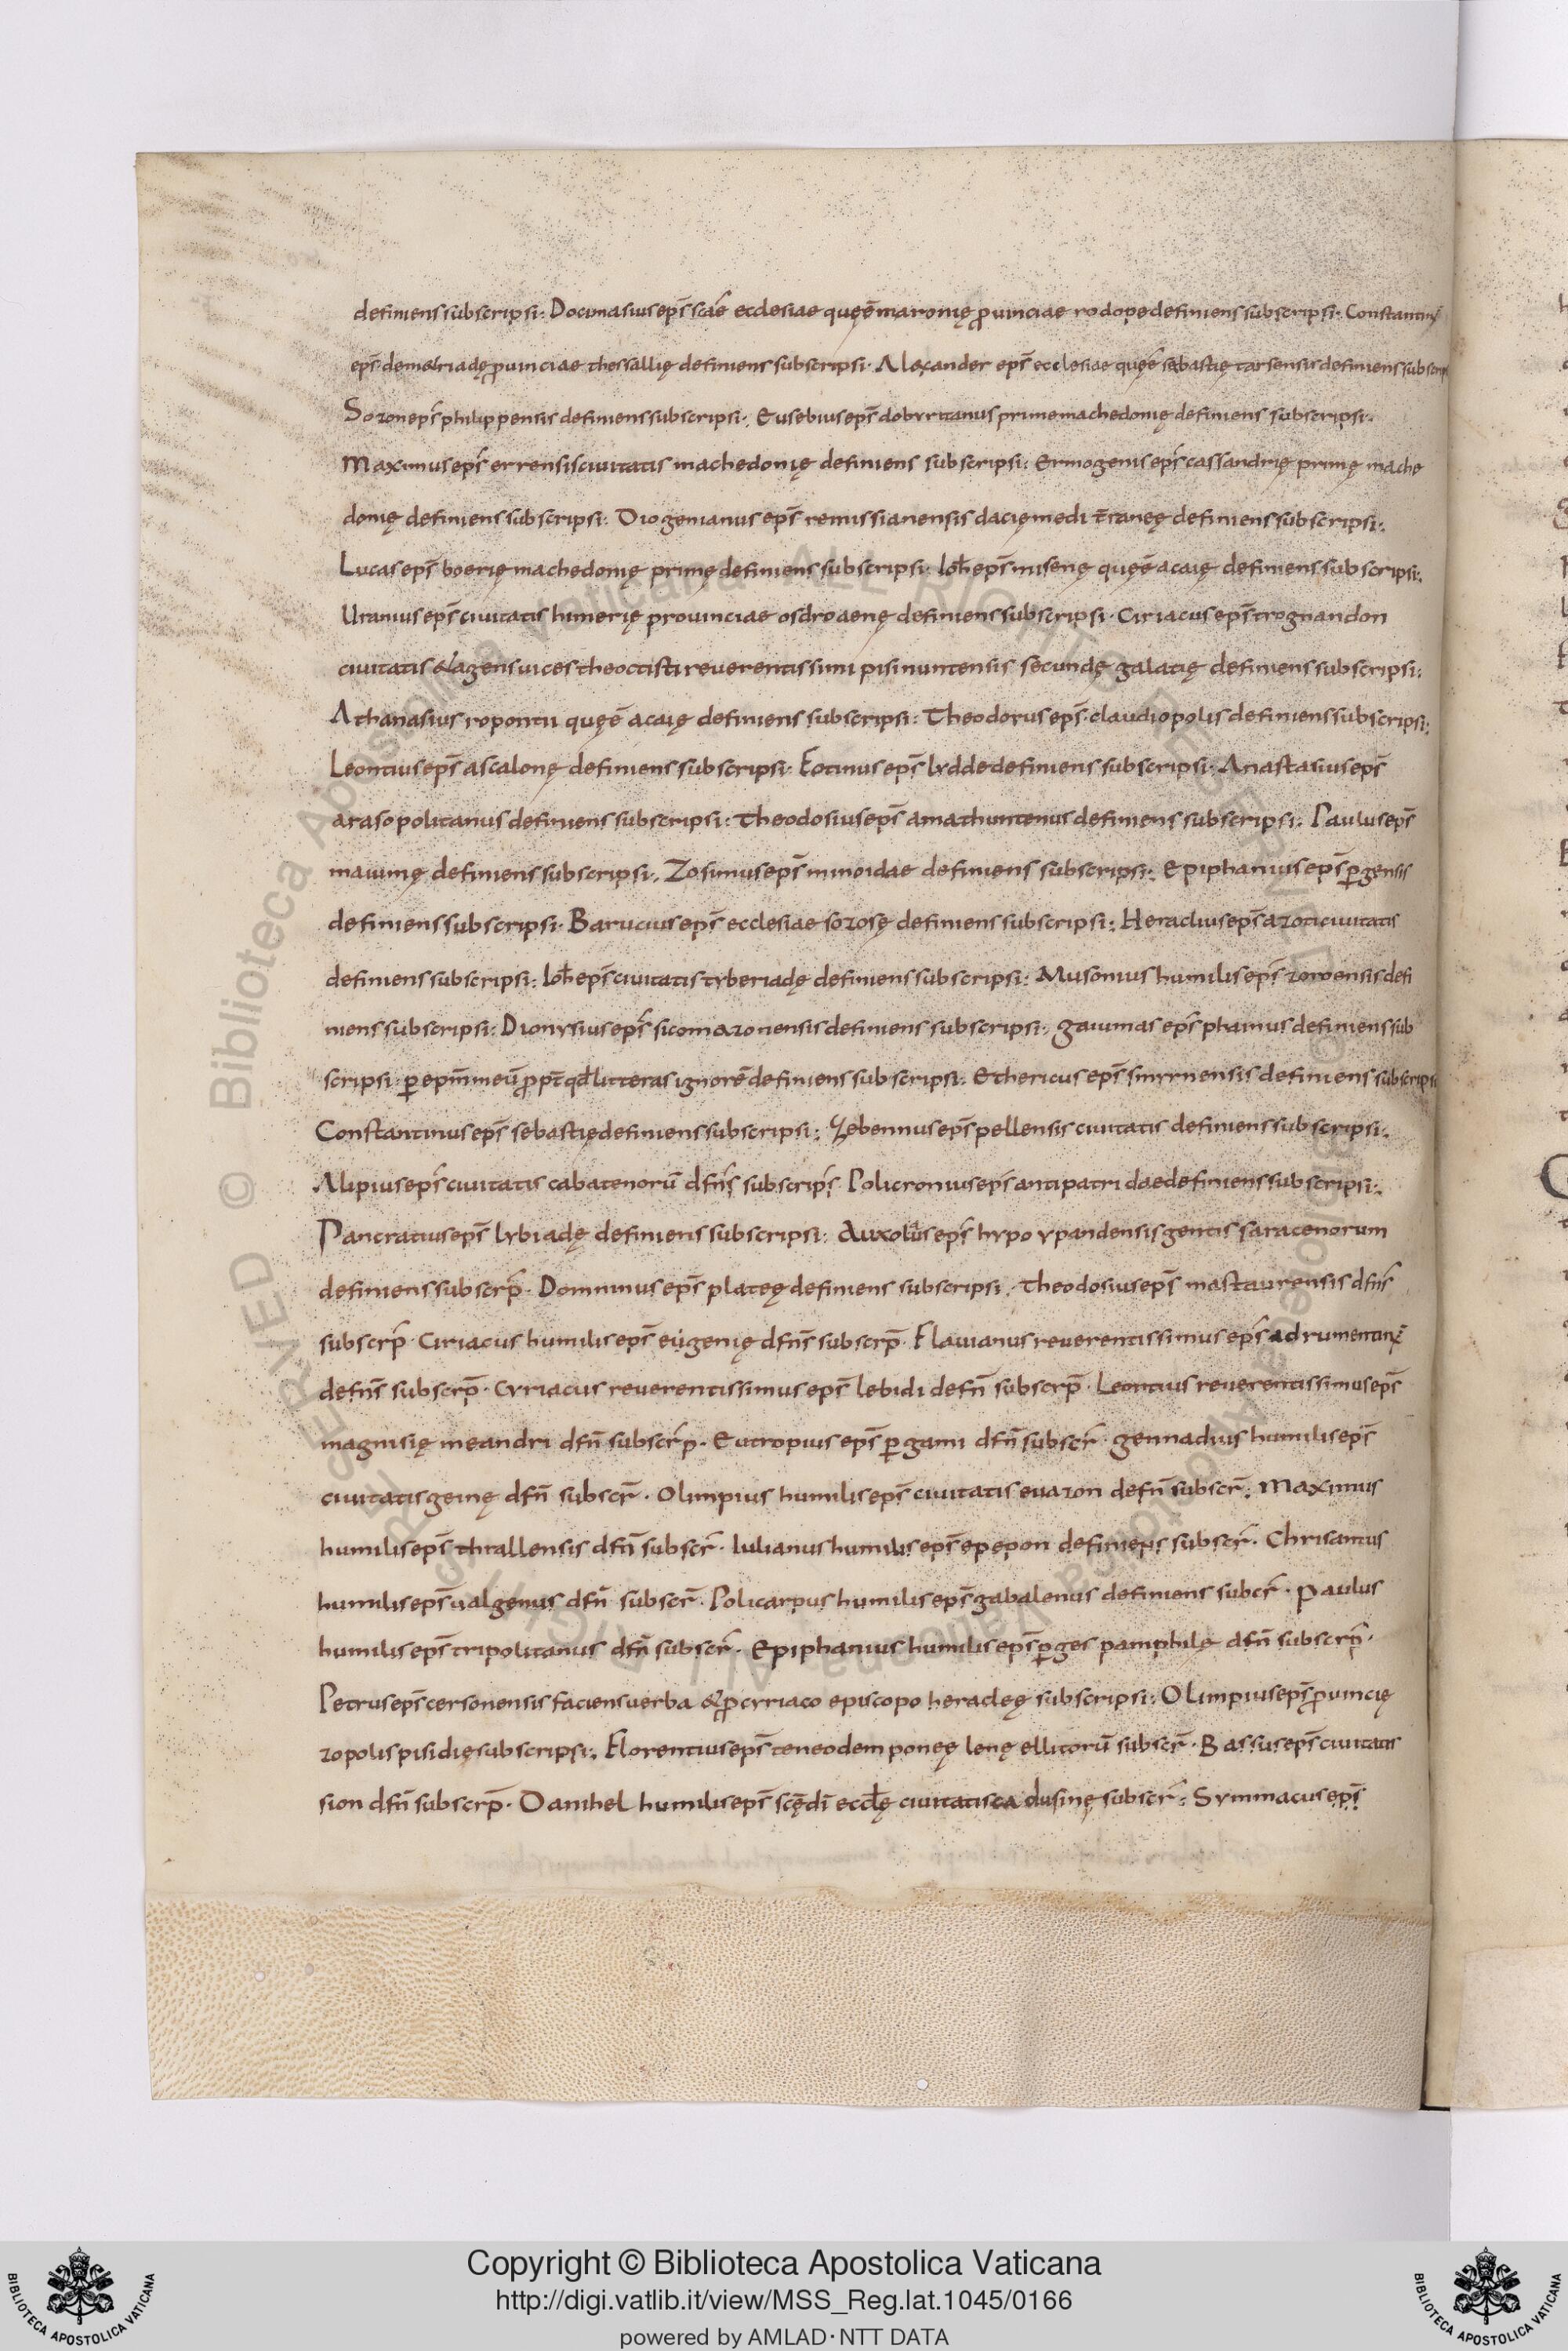 definiens subscripsi: Docimasius ep̄s scāe ecclesiae quę ē maronię prouinciae rodope definiens subscripsi. Constantinꝰ
ep̄s demetriadę prouinciae thessallię definiens subscripsi. Alexander ep̄s ecclesiae quę ē sebastię tarsensis definiens subscrip
Sozon ep̄s philippensis definiens subscripsi. Eusebius ep̄s dobyritanus prime machedonię definiens subscripsi.
Maximus ep̄s errensis ciuitatis machedonię definiens subscripsi: Ermogenis ep̄s cassandrię primę mache
donię definiens subscripsi: Diogenianus ep̄s remissianensis dacię medit̄ranęę definiens subscripsi:
Lucas ep̄s boerię machedonię primę definiens subscripsi. Ioh̄ ep̄s misenę quę ē acaię definiens subscripsi:
Uranius ep̄s ciuitatis himerię prouinciae osdroaenę definiens subscripsi. Ciriacus ep̄s trognandon
ciuitatis & agens uices theoctisti reuerentissimi pisinuntensis secundę galatię definiens subscripsi:
Athanasius ropontii quę ē acaię definiens subscripsi: Theodorus ep̄s claudiopolis definiens subscripsi:
Leontius ep̄s ascalonę definiens subscripsi. Fotinus ep̄s lydde definiens subscripsi. Anastasius ep̄s
arasopolitanus definiens subscripsi: Theodosius ep̄s amathuntenus definiens subscripsi: Paulus ep̄s
maiumę definiens subscripsi. Zosimus ep̄s minoidae definiens subscripsi: Epiphanius ep̄s ꝑgensis
definiens subscripsi. Barucius ep̄s ecclesiae sozosę definiens subscripsi: Heraclius ep̄s azoti ciuitatis
definiens subscripsi: Ioh̄ ep̄s ciuitatis tyberiadę definiens subscripsi: Musonius humilis ep̄s zoroensis defi
niens subscripsi: Dionysius ep̄s sicomazonensis definiens subscripsi: gaiumas ep̄s phainus definiens sub
scripsi ꝑ ep̄m meū ꝓpt̄ qđ litteras ignorē definiens subscripsi: Ethericus ep̄s smyrnensis definiens subscripsi
Constantinus ep̄s sebastię definiens subscripsi: Zebennus ep̄s pellensis ciuitatis definiens subscripsi.
Alipius ep̄s ciuitatis cabatenorū dfn̄s subscrips̄. Policronius ep̄s antipatridae definiens subscripsi:
Pancratius ep̄s lybiadę definiens subscripsi: Auxolaus ep̄s hypo ypandensis gentis saracenorum
definiens subscrp̄. Domninus ep̄s platęę definiens subscripsi. Theodosius ep̄s mastaurensis dfn̄s
subscrp̄. Ciriacus humilis ep̄s eugenię dfn̄s subscrp̄. Flauianus reuerentissimus ep̄s adrumentanꝰ
defn̄s subscrp̄. Cyriacus reuerentissimus ep̄s lebidi defn̄ subscrp̄. Leontius reuerentissimus ep̄s
magnisię meandri dfn̄ subscrp̄. Eutropius ep̄s ꝑgami dfn̄ subscr̄. gennadius humilis ep̄s
ciuitatis geinę dfn̄ subscr̄. Olimpius humilis ep̄s ciuitatis euazon defn̄ subscr̄: Maximus
humilis ep̄s thrallensis dfn̄ subscr̄. Iulianus humilis ep̄s epepon definiens subscr̄. Chrisantus
humilis ep̄s ualgenus dfn̄ subscr̄. Policarpus humilis ep̄s gabalenus definiens subcr̄. Paulus
humilis ep̄s tripolitanus dfn̄ subscr̄. Epiphanius humilis ep̄s ꝑges pamphilę dfn̄ subscrp̄.
Petrus ep̄s cersonensis faciens uerba & ꝓ cyriaco episcopo heraclęę subscripsi: Olimpius ep̄s ꝓuincię
zopolis pisidię subscripsi. Florentius ep̄s teneodem ponęę lenę ellitorū subscr̄. Bassus ep̄s ciuitatis
sion dfn̄ subscrp̄. Danihel humilis ep̄s scę dī eccłę ciuitatis cadusinę subscr̄: Symmacus ep̄s
Copyright © Biblioteca Apostolica Vaticana
http://digi.vatlib.it/view/MSS_Reg.lat.1045/0166
powered by AMLAD·NTT DATA